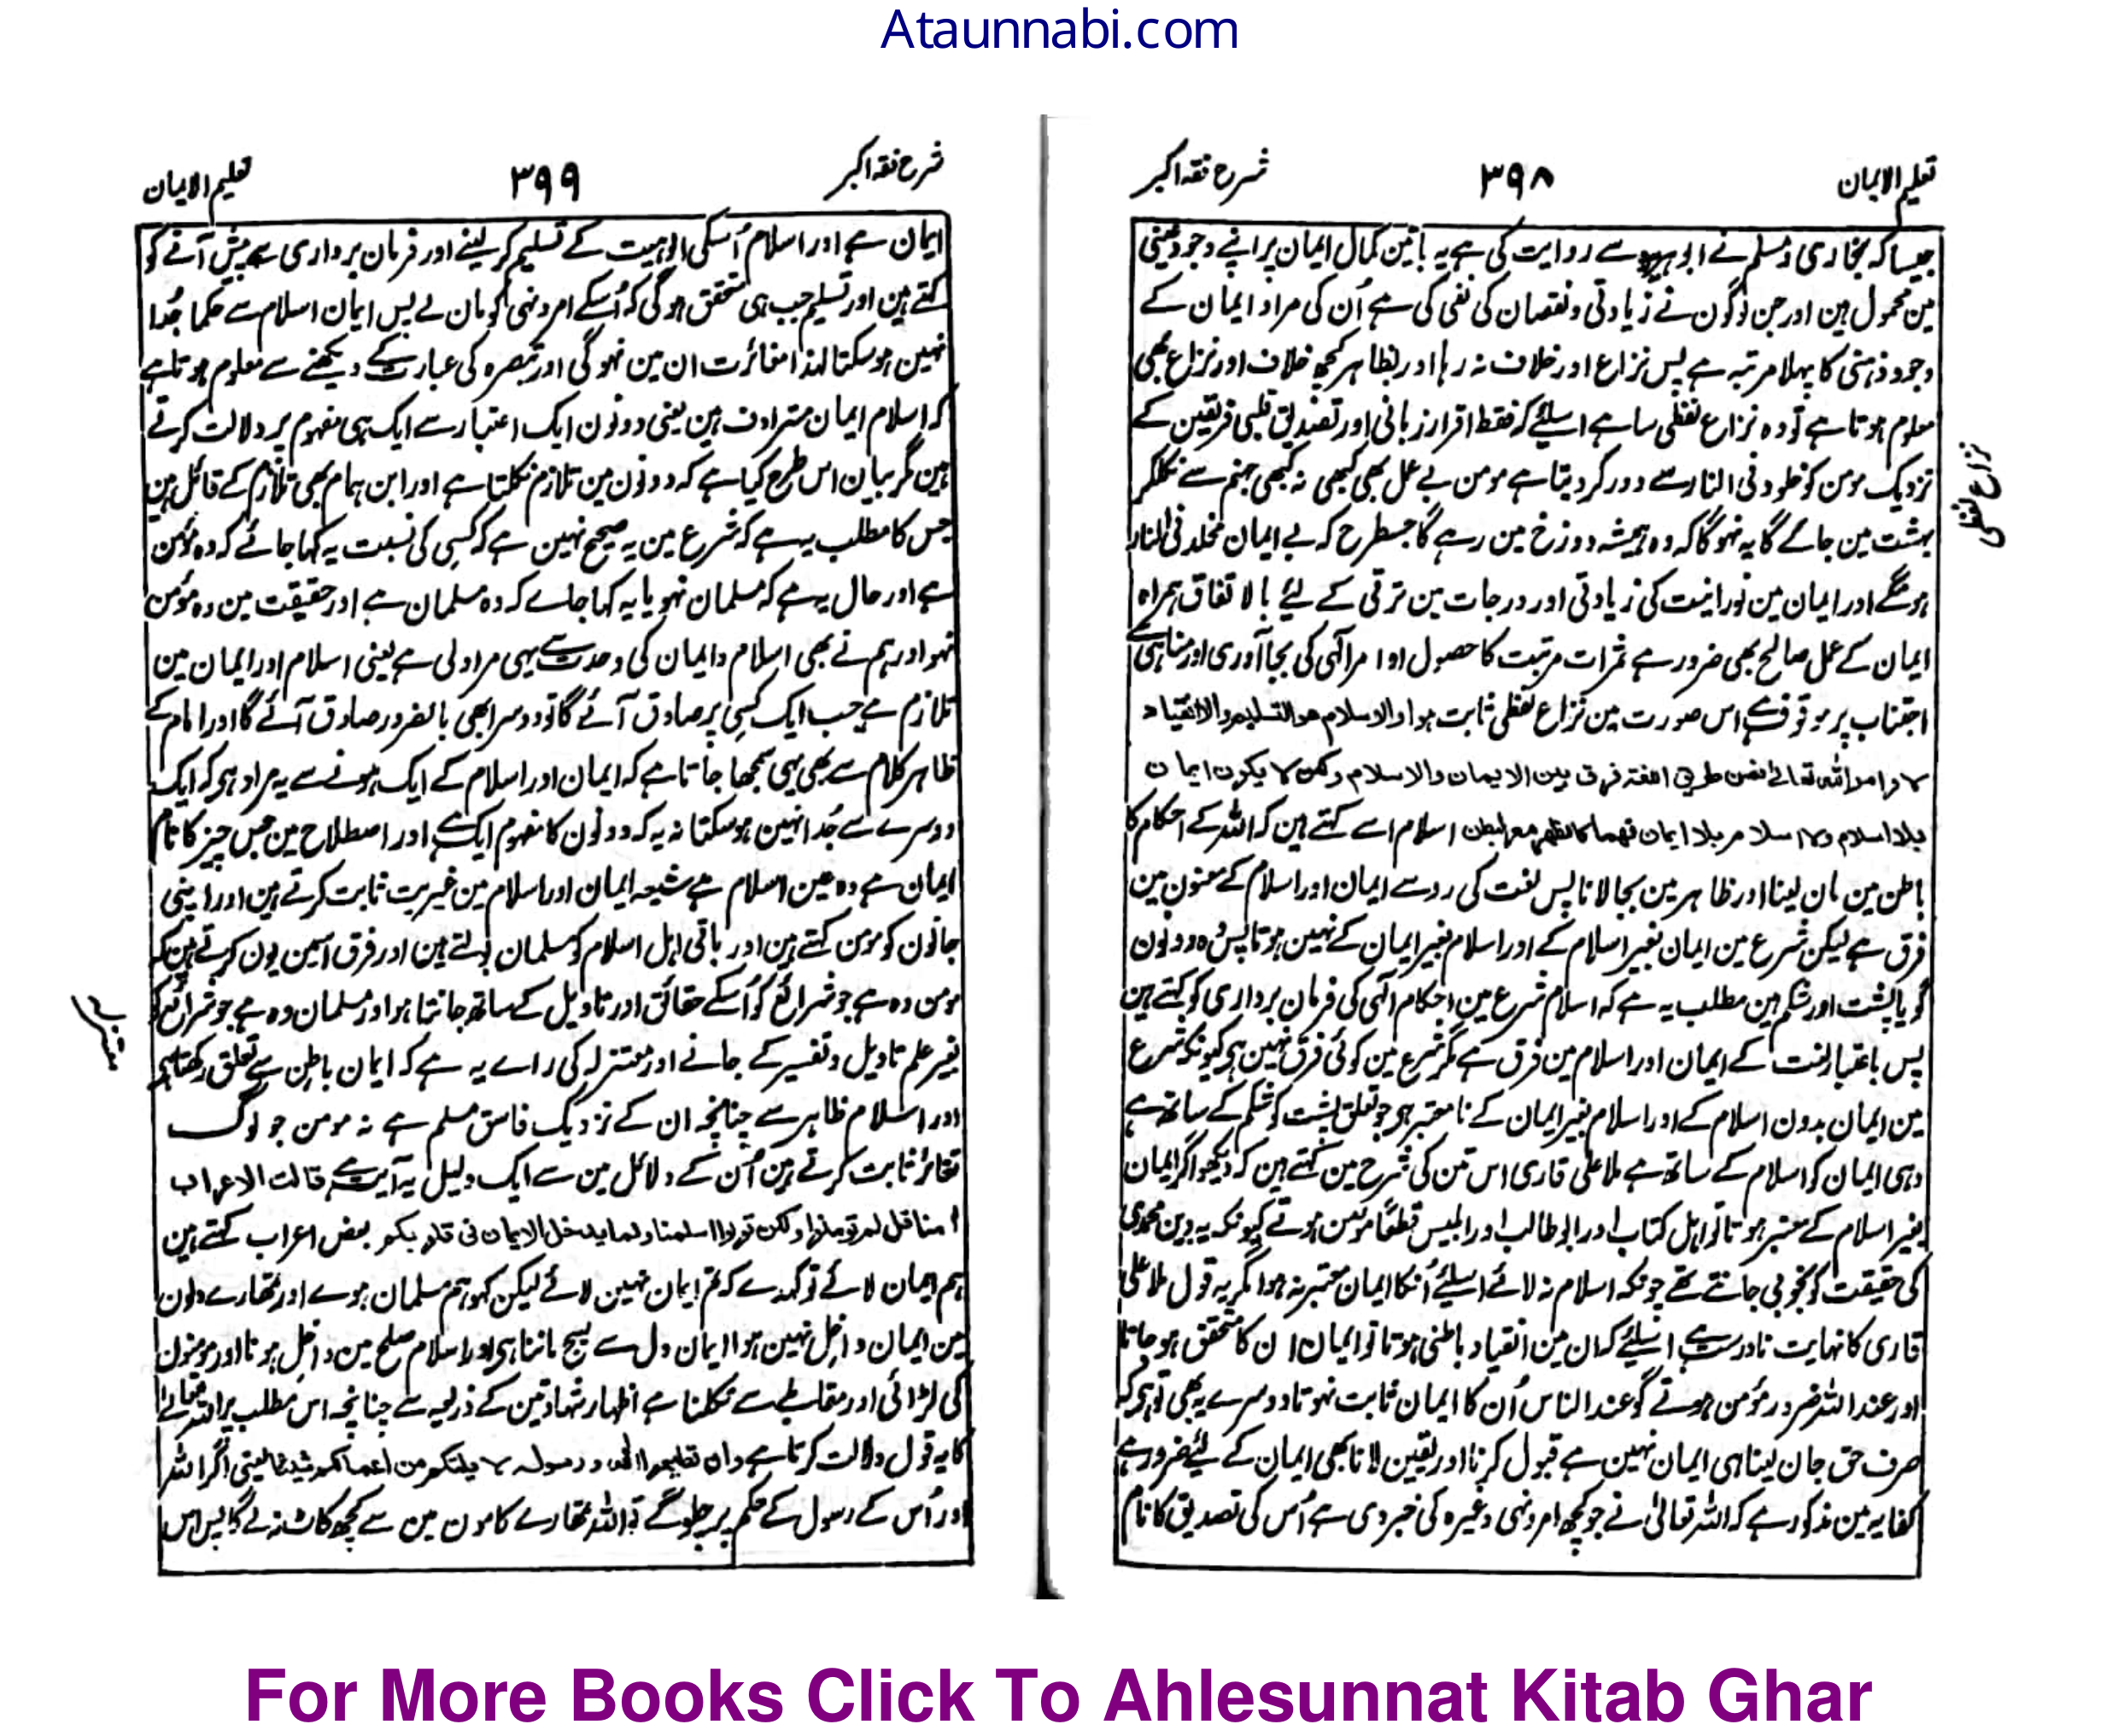 Ataunnabi.com
تعلیم الایمان
۳۹۸
شرح فقہ اکبر
جیسا کہ بخاری ومسلم نے ابوہریرہ سے روایت کی ہے یہ باتین کمال ایمان پر اپنے وجود عینی
مین محمول ہین اور جن لوگون نے زیادتی ونقصان کی نفی کی ہے اُن کی مراد ایمان کے
وجود ذہنی کا پہلا مرتبہ ہے پس نزاع اور خلاف نہ رہا اور بظاہر کچھ خلاف اور نزاع بھی
معلوم ہوتا ہے تو وہ نزاع لفظی سا ہے اسلئے کہ فقط اقرار زبانی اور تصدیق قلبی فریقین کے
نزدیک مومن کو خلود فی النار سے دور کردیتا ہے مومن بے عمل بھی کبھی نہ کبھی جہنم سے نکلکر
بہشت مین جائے گا یہ نہوگا کہ وہ ہمیشہ دوزخ مین رہے گا جسطرح کہ بے ایمان مخلد فی النار
ہونگے اور ایمان مین نورانیت کی زیادتی اور درجات مین ترقی کے لئے بالاتفاق ہمراہ
ایمان کے عمل صالح بھی ضرور ہے ثمرات مرتبت کا حصول اوامر الٰہی کی بجا آوری اور مناہی سے
اجتناب پر موقوف ہے اس صورت مین نزاع لفظی ثابت ہوا والاسلام ھو التسلیم والانقیاد
لاوامر اللہ تعالیٰ فمن طریق اللغة فرق بین الایمان والاسلام ولکن لا یکون ایمان
بلا اسلام ولا اسلام بلا ایمان فھما کالظھر مع البطن اسلام اسے کہتے ہین کہ اللہ کے احکام کا
باطن مین مان لینا اور ظاہر مین بجالانا پس لغت کی رو سے ایمان اور اسلام کے معنون مین
فرق ہے لیکن شرع مین ایمان بغیر اسلام کے اور اسلام بغیر ایمان کے نہین ہوتا پس وہ دونون
گویا پشت اور شکم ہین مطلب یہ ہے کہ اسلام شرع مین احکام الٰہی کی فرمان برداری کو کہتے ہین
پس باعتبار لغت کے ایمان اور اسلام مین فرق ہے مگر شرع مین کوئی فرق نہین ہے کیونکہ شرع
مین ایمان بدون اسلام کے اور اسلام بغیر ایمان کے نامعتبر ہے جو تعلق پشت کو شکم کے ساتھ ہے
وہی ایمان کو اسلام کے ساتھ ہے ملا علی قاری اس متن کی شرح مین کہتے ہین کہ دیکھو اگر ایمان
بغیر اسلام کے معتبر ہوتا تو اہل کتاب اور ابوطالب اور ابلیس قطعًا مومن ہوتے کیونکہ یہ دین محمدی
کی حقیقت کو بخوبی جانتے تھے چونکہ اسلام نہ لائے اسلئے اُنکا ایمان معتبر نہ ہوا مگر یہ قول ملا علی
قاری کا نہایت نادرست ہے اسلئے کہ ان مین انقیاد باطنی ہوتا تو ایمان ان کا متحقق ہوجاتا
اور عند اللہ ضرور مؤمن ہوتے گو عند الناس اُن کا ایمان ثابت نہوتا دوسرے یہ بھی تو ہے کہ
صرف حق جان لینا ہی ایمان نہین ہے قبول کرنا اور یقین لانا بھی ایمان کے لئے ضرور ہے
کفایہ مین مذکور ہے کہ اللہ تعالیٰ نے جو کچھ امر ونہی وغیرہ کی خبر دی ہے اُس کی تصدیق کا نام
نزاع لفظی
شرح فقہ اکبر
۳۹۹
تعلیم الایمان
ایمان ہے اور اسلام اُسکی الوہیت کے تسلیم کرلینے اور فرمان برداری سے پیش آنے کو
کہتے ہین اور تسلیم جب ہی متحقق ہوگی کہ اُسکے امر ونہی کو مان لے پس ایمان اسلام سے حکما جُدا
نہین ہوسکتا لہذا مغائرت ان مین نہوگی اور تبصرہ کی عبارت کے دیکھنے سے معلوم ہوتا ہے
کہ اسلام ایمان مترادف ہین یعنی دونون ایک اعتبار سے ایک ہی مفہوم پر دلالت کرتے
ہین مگر بیان اس طرح کیا ہے کہ دونون مین تلازم نکلتا ہے اور ابن ہمام بھی تلازم کے قائل ہین
جس کا مطلب یہ ہے کہ شرع مین یہ صحیح نہین ہے کہ کسی کی نسبت یہ کہا جائے کہ وہ مؤمن
ہے اور حال یہ ہے کہ مسلمان نہو یا یہ کہا جاے کہ وہ مسلمان ہے اور حقیقت مین وہ مؤمن
نہو اور ہم نے بھی اسلام وایمان کی وحدت سے یہی مراد لی ہے یعنی اسلام اور ایمان مین
تلازم ہے جب ایک کسی پر صادق آئے گا تو دوسرا بھی بالضرور صادق آئے گا اور امام کے
ظاہر کلام سے بھی یہی سمجھا جاتا ہے کہ ایمان اور اسلام کے ایک ہونے سے یہ مراد ہے کہ ایک
دوسرے سے جُدا نہین ہوسکتا نہ یہ کہ دونون کا مفہوم ایک ہے اور اصطلاح مین جس چیز کا نام
ایمان ہے وہ عین اسلام ہے شیعہ ایمان اور اسلام مین غیریت ثابت کرتے ہین اور اپنی
جانون کو مومن کہتے ہین اور باقی اہل اسلام کو مسلمان بولتے ہین اور فرق اسمین یون کرتے ہین کہ
مومن وہ ہے جو شرائع کو اُسکے حقائق اور تاویل کے ساتھ جانتا ہو اور مسلمان وہ ہے جو شرائع کو
بغیر علم تاویل وتفسیر کے جانے اور معتزلہ کی راے یہ ہے کہ ایمان باطن سے تعلق رکھتا ہے
اور اسلام ظاہر سے چنانچہ ان کے نزدیک فاسق مسلم ہے نہ مومن جو لوگ
تغائر ثابت کرتے ہین اُن کے دلائل مین سے ایک دلیل یہ آیت ہے قالت الاعراب
اٰمنا قل لم تومنوا ولکن قولوا اسلمنا ولما یدخل الایمان فی قلوبکم بعض اعراب کہتے ہین
ہم ایمان لائے تو کہدے کہ تم ایمان نہین لائے لیکن کہو ہم مسلمان ہوے اور تمھارے دلون
مین ایمان داخل نہین ہوا ایمان دل سے سچ ماننا ہے اور اسلام صلح مین داخل ہونا اور مومنون
کی لڑائی اور مقابلے سے نکلنا ہے اظہار شہادتین کے ذریعہ سے چنانچہ اس مطلب پر اللہ تعالےٰ
کا یہ قول دلالت کرتا ہے وان تطیعوا اللہ ورسولہ لا یلتکم من اعمالکم شیئا یعنی اگر اللہ
اور اُس کے رسول کے حکم پر چلوگے تو اللہ تمھارے کامون مین سے کچھ کاٹ نہ لے گا پس اس
For More Books Click To Ahlesunnat Kitab Ghar